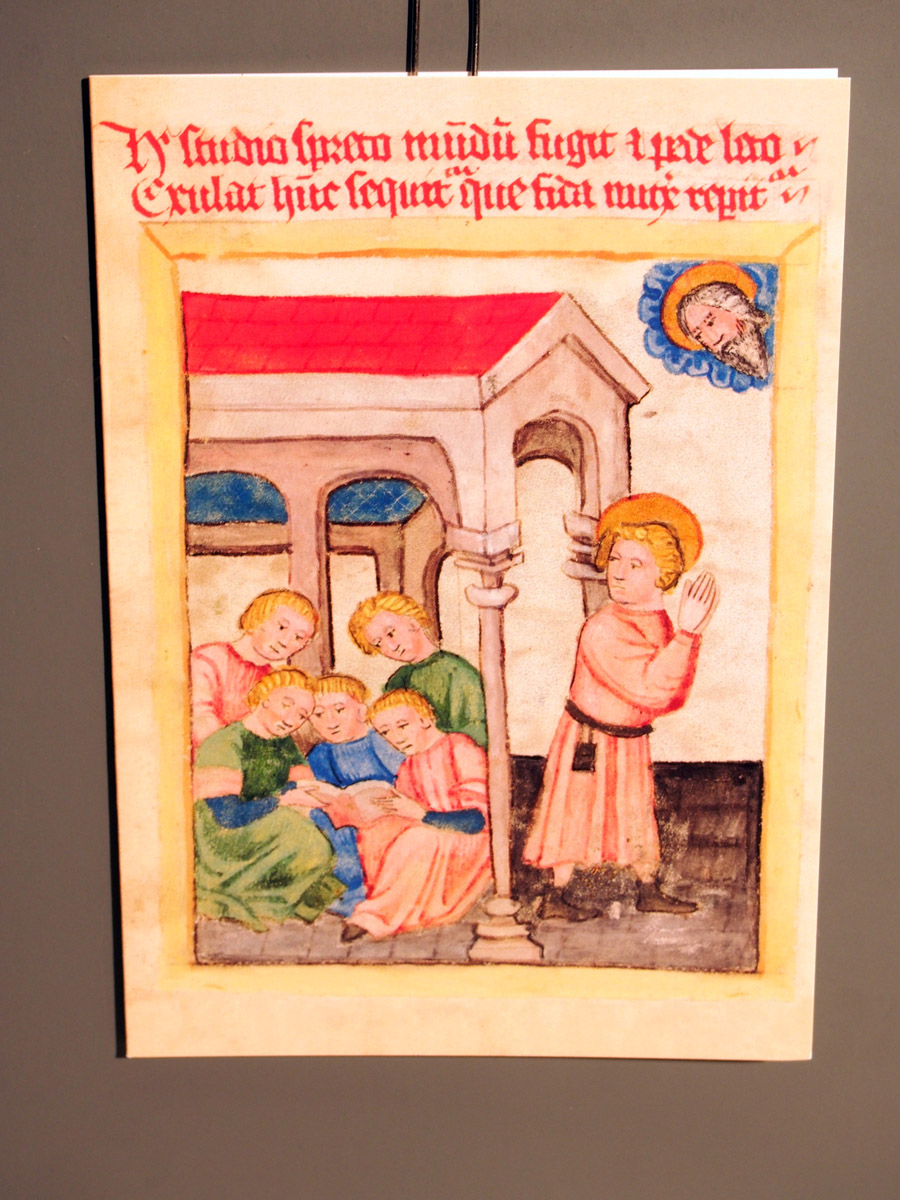 Hᶜ studio spreto mūdū fugit ⁊ pede leto
Exulat hūc sequit᷑ que fida nutˣ repit᷑